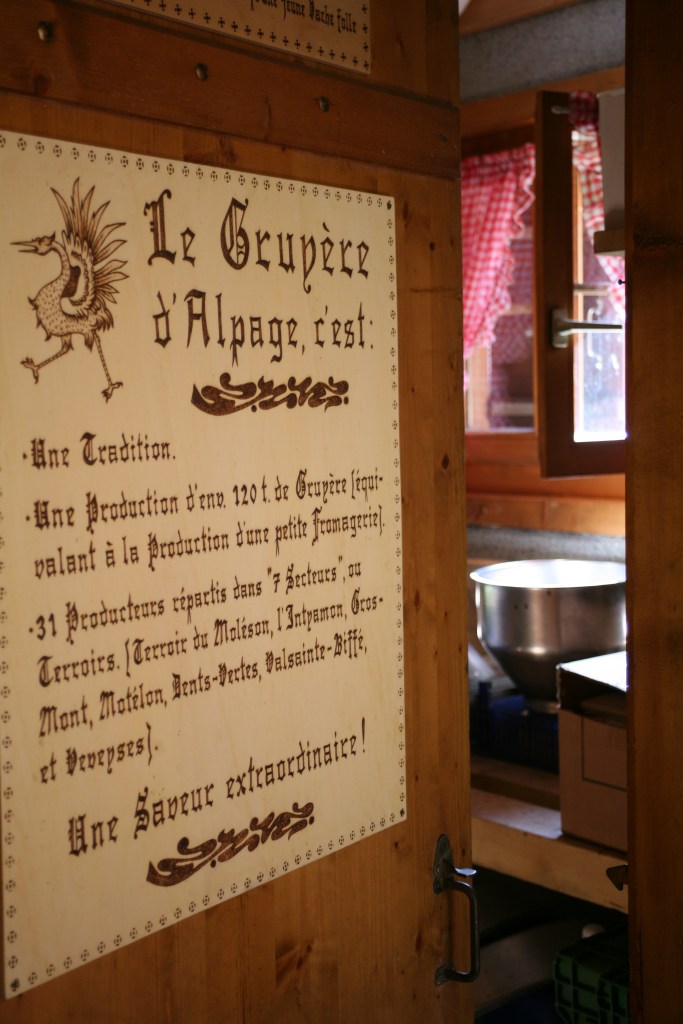 Une jeune Vache folle
Le Gruyère
d'Alpage, c'est:
·Une Tradition.
·Une Production d'env. 120 t. de Gruyère (équi-
valant à la Production d'une petite Fromagerie).
·31 Producteurs répartis dans "7 Secteurs", ou
Terroirs. (Terroir du Moléson, l'Intyamon, Gros-
Mont, Motélon, Dents-Vertes, Valsainte-Biffé,
et Veveyses).
Une Saveur extraordinaire!